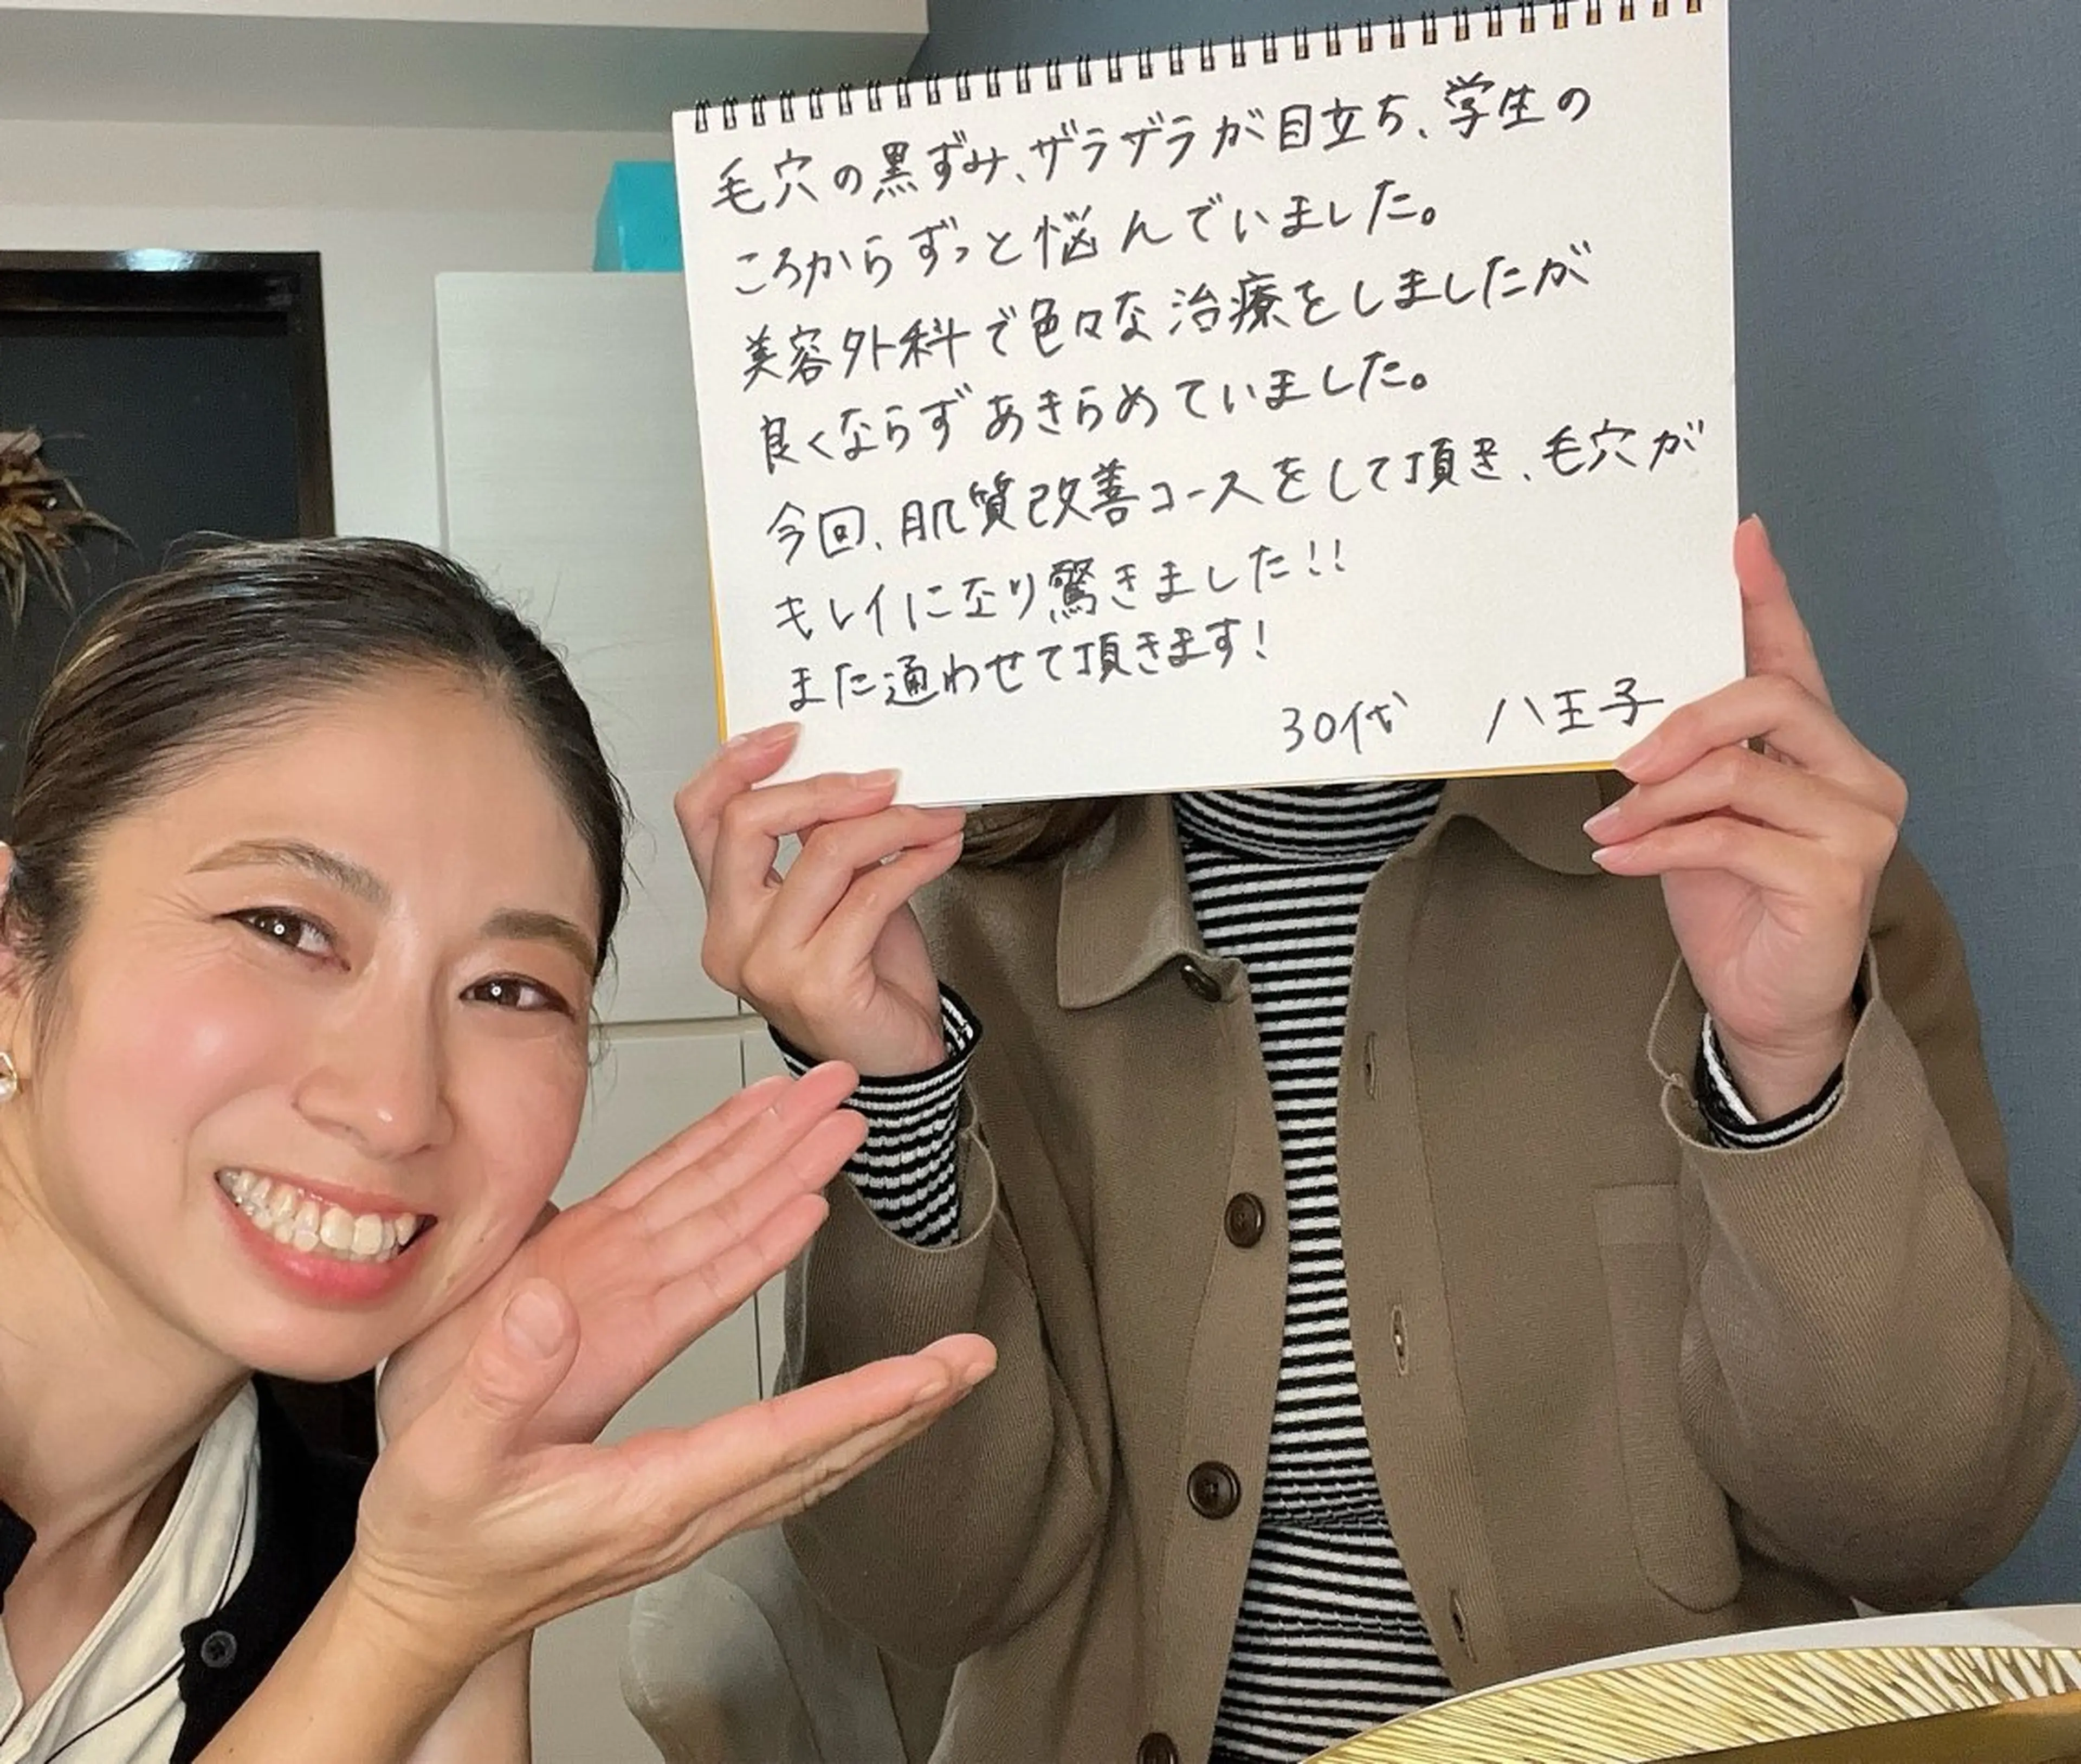 毛穴の黒ずみ、ザラザラが目立ち、学生の
ころからずっと悩んでいました。
美容外科で色々な治療をしましたが
良くならずあきらめていました。
今回、肌質改善コースをして頂き、毛穴が
キレイになり驚きました!!
また通わせて頂きます!
30代 八王子